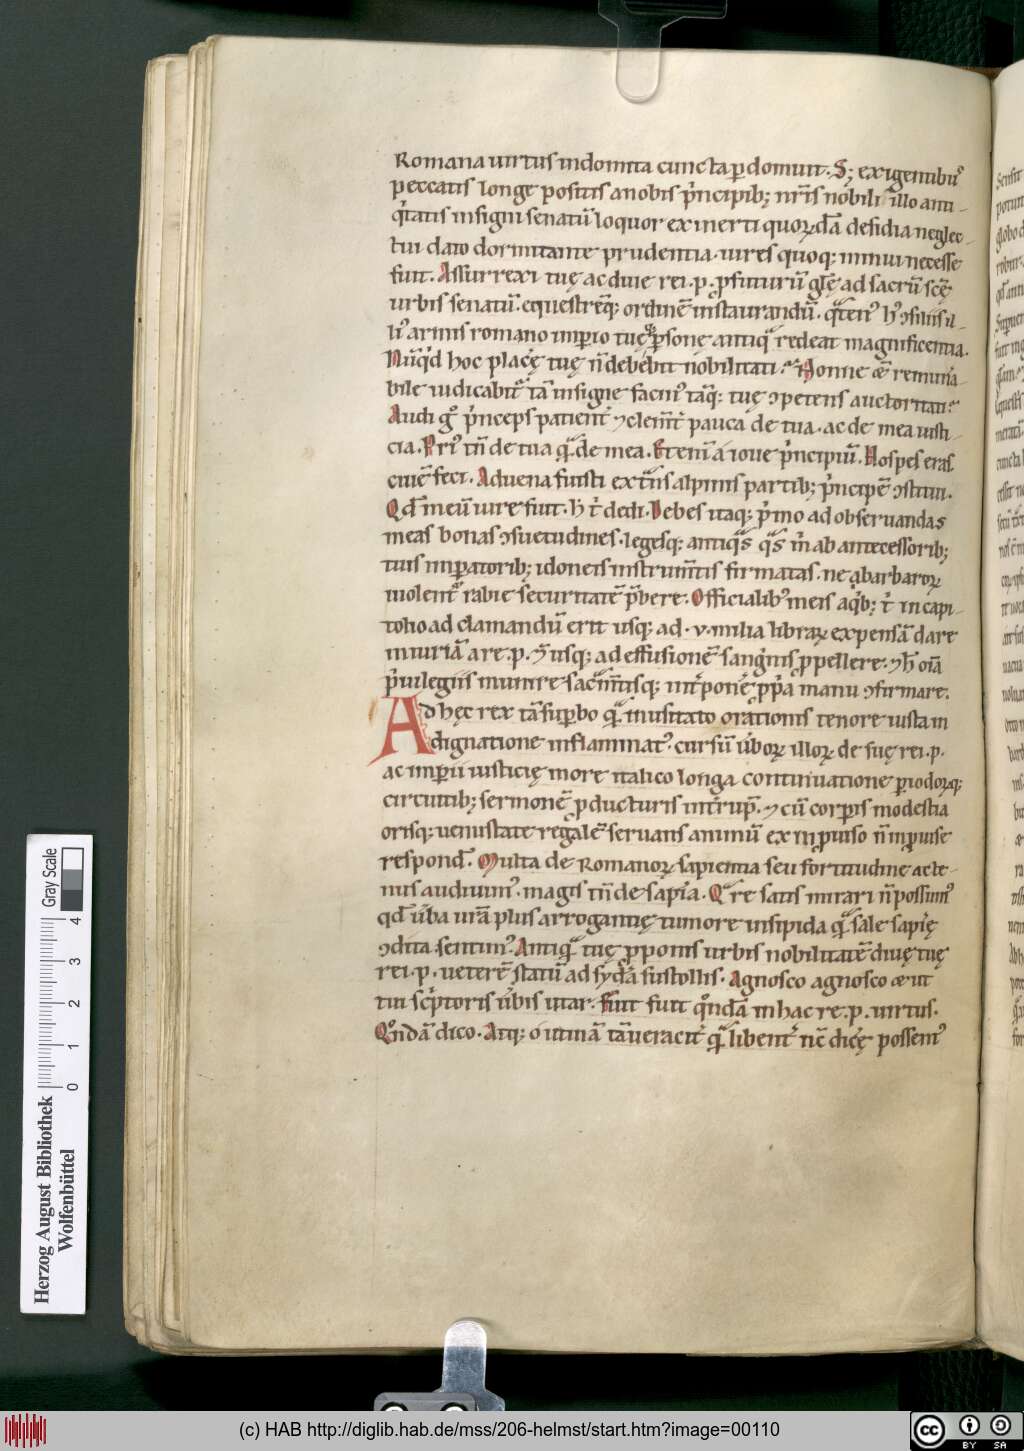 Romana uirtus indomita cuncta ꝑdomuit. S; exigentibꝰ
peccatis longe positis a nobis pͥncipib; nr̄is nobili illo anti-
qͥtatis insigni senatū loquor ex inerti quorūdā desidia neglec-
tui dato dormitante prudentia. uires quoq; minui necesse
fuit. Assurrexi tuę ac diue rei .p. ꝓfuturū gl̄e ad sacrū scę̄
urbis senatū. equestrēq; ordinē instaurandū. qͣtenꝰ hꝰ ↄsiliis il-
liꝰ armis romano imꝑio tuęqꝫ ꝑsone antiqͣ redeat magnificentia.
Nūqͥd hoc placę̄ tuę n̄ debebit nobilitati? Nonne & remunͣa-
bile iudicabitͬ tā insigne facinꝰ tāq; tuę ↄpetens auctoritati?
Audi gͦ pͥnceps patientͬ ⁊ clem̄tͬ pauca de tua. ac de mea iusti-
cia. Priꝰ tn̄ de tua qͣ̄ de mea. Etenī a ioue pͥncipiū. Hospes eras
ciuē feci. Aduena fuisti ex tͣnsalpinis partib; pͥncipē ↄstitui.
Qd̄ meū iure fuit. h̄ tͥ dedi. Debes itaq; pͥmo ad obseruandas
meas bonas ↄsuetudines. legesq; antiqͣs qͣs m̄ ab antecessorib;
tuis imꝑatorib; idoneis instrum̄tis firmatas. ne a barbaroꝝ
uiolentͬ rabie securitatē pͥbere. Officialibꝰ meis aqͥb; tͥ in capi-
tolio adclamandū erit usq; ad .v. milia libraꝝ expensā dare
iniuriā a re.p. ⁊ usq; ad effusionē sangͥnis ꝓpellere. ⁊ h̄ oīa
pͥuilegiis munire sacͣm̄tisq; intͬponē ꝓpͥa manu ↄfirmare.
Ad hęc rex tā suꝑbo qͣ̄ inusitato orationis tenore iusta in
dignatione inflammatꝰ. cursū ūboꝝ illoꝝ de suę rei .p.
ac imꝑii iusticię more italico longa continuatione ꝑiodoꝝq;
circuitib; sermonē ꝓducturis intͬrup̄. ⁊ cū corꝑis modestia
orisq; uenustate regalē seruans animū ex inꝓuiso n̄ inꝓuise
respond̄. Multa de Romanoꝝ sapientia seu fortitudine acte-
nus audiuimꝰ. magis tn̄ de sapīa. Qͣre satis mirari n̄ possumꝰ
qd̄ ūba ur̄a plus arrogantię tumore insipida qͣ̄ sale sapīę
ↄdita sentimꝰ. Antiqͣ̄ tuę ꝓponis urbis nobilitatē diuę tuę
rei .p. ueterē statū ad sydͣa sustollis. Agnosco agnosco & ut
tui scͥptoris ūbis utar. Fuit fuit qͦndā in hac re.p. uirtus.
Qͦndā dico. Atq; o utinā tā ueracitͬ qͣ̄ libentͬ nc̄ dicę̄ possemꝰ
Herzog August Bibliothek
Wolfenbüttel
0 1 2 3 4
Gray Scale
(c) HAB http://diglib.hab.de/mss/206-helmst/start.htm?image=00110
cc BY SA